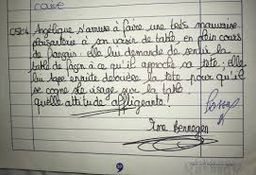 Angélique s'amuse à faire une très mauvaise
plaisanterie à son voisin de table, en plein cours
de français : elle lui demande de sentir la
table de façon à ce qu'il approche sa tête ; elle
lui tape ensuite derrière la tête pour qu'il
se cogne le visage sur la table.
quelle attitude affligeante !
Mme
9